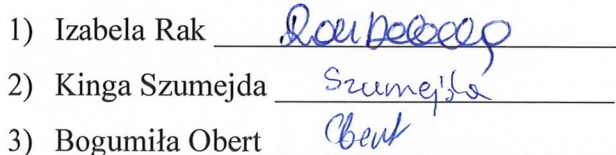 1) Izabela Rak
2) Kinga Szumejda Szumejda
3) Bogumiła Obert Obert